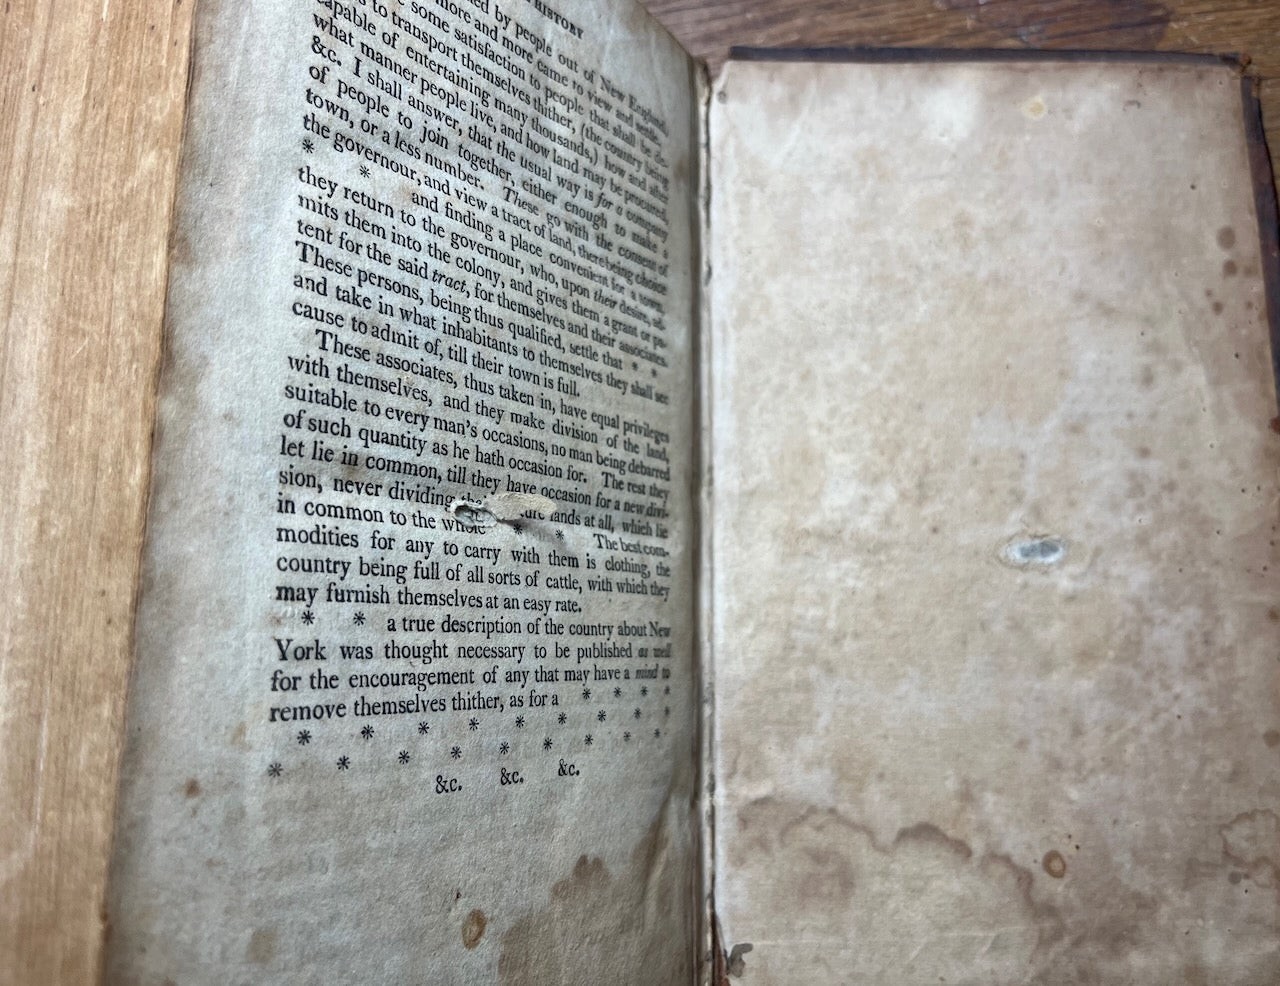 HISTORY
by people out of New England,
more and more came to view and settle.
some satisfaction to people that shall be de-
to transport themselves thither, (the country being
capable of entertaining many thousands,) how and after
what manner people live, and how land may be procured,
&c. I shall answer, that the usual way is for a company
of people to join together, either enough to make a
town, or a less number. These go with the consent of
the governour, and view a tract of land, there being choice
* * and finding a place convenient for a town,
they return to the governour, who, upon their desire, ad-
mits them into the colony, and gives them a grant or pa-
tent for the said tract, for themselves and their associates.
These persons, being thus qualified, settle that * *
and take in what inhabitants to themselves they shall see
cause to admit of, till their town is full.
These associates, thus taken in, have equal privileges
with themselves, and they make division of the land,
suitable to every man's occasions, no man being debarred
of such quantity as he hath occasion for. The rest they
let lie in common, till they have occasion for a new divi-
sion, never dividing lands at all, which lie
in common to the whole * * The best com-
modities for any to carry with them is clothing, the
country being full of all sorts of cattle, with which they
may furnish themselves at an easy rate.
* * a true description of the country about New
York was thought necessary to be published as well
for the encouragement of any that may have a mind to
remove themselves thither, as for a * * * *
* * * * * * * *
* * * * * * * *
&c. &c. &c.